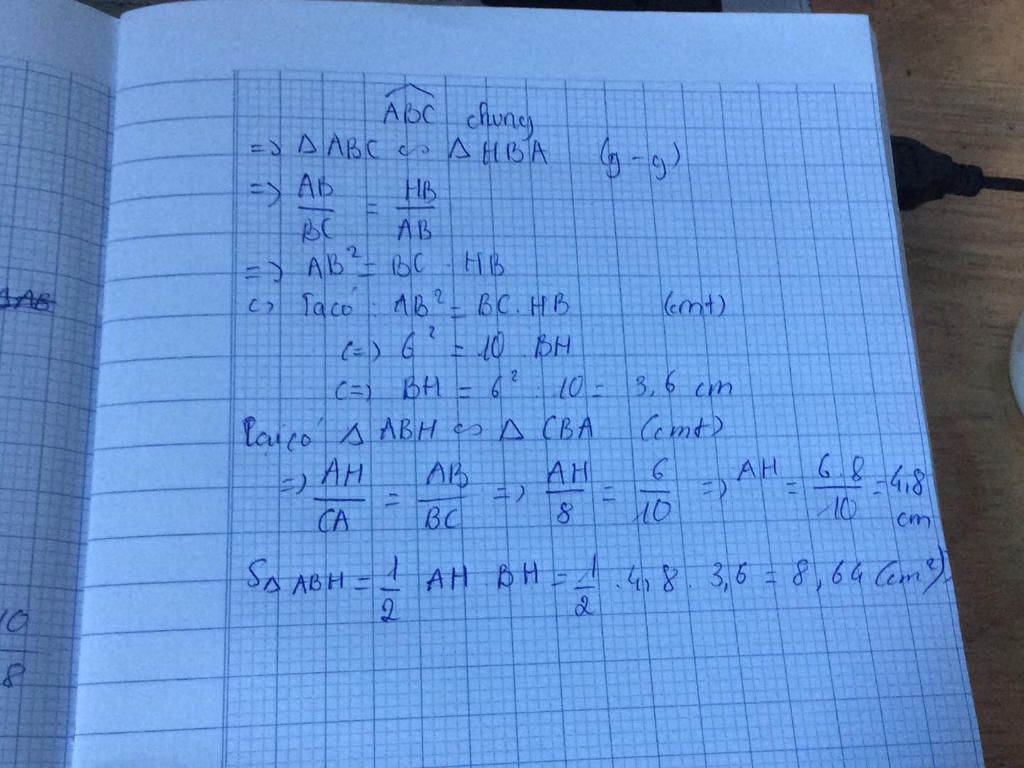 ABC chung
=> Δ ABC ∽ Δ HBA (g - g)
=> AB/BC = HB/AB
=> AB² = BC . HB
c) Ta có : AB² = BC . HB (cmt)
(=) 6² = 10 . BH
(=) BH = 6² : 10 = 3,6 cm
Ta có Δ ABH ∽ Δ CBA (cmt)
=> AH/CA = AB/BC => AH/8 = 6/10 => AH = 6.8/10 = 4,8 cm
SΔ ABH = 1/2 AH . BH = 1/2 . 4,8 . 3,6 = 8,64 (cm²)
10
8